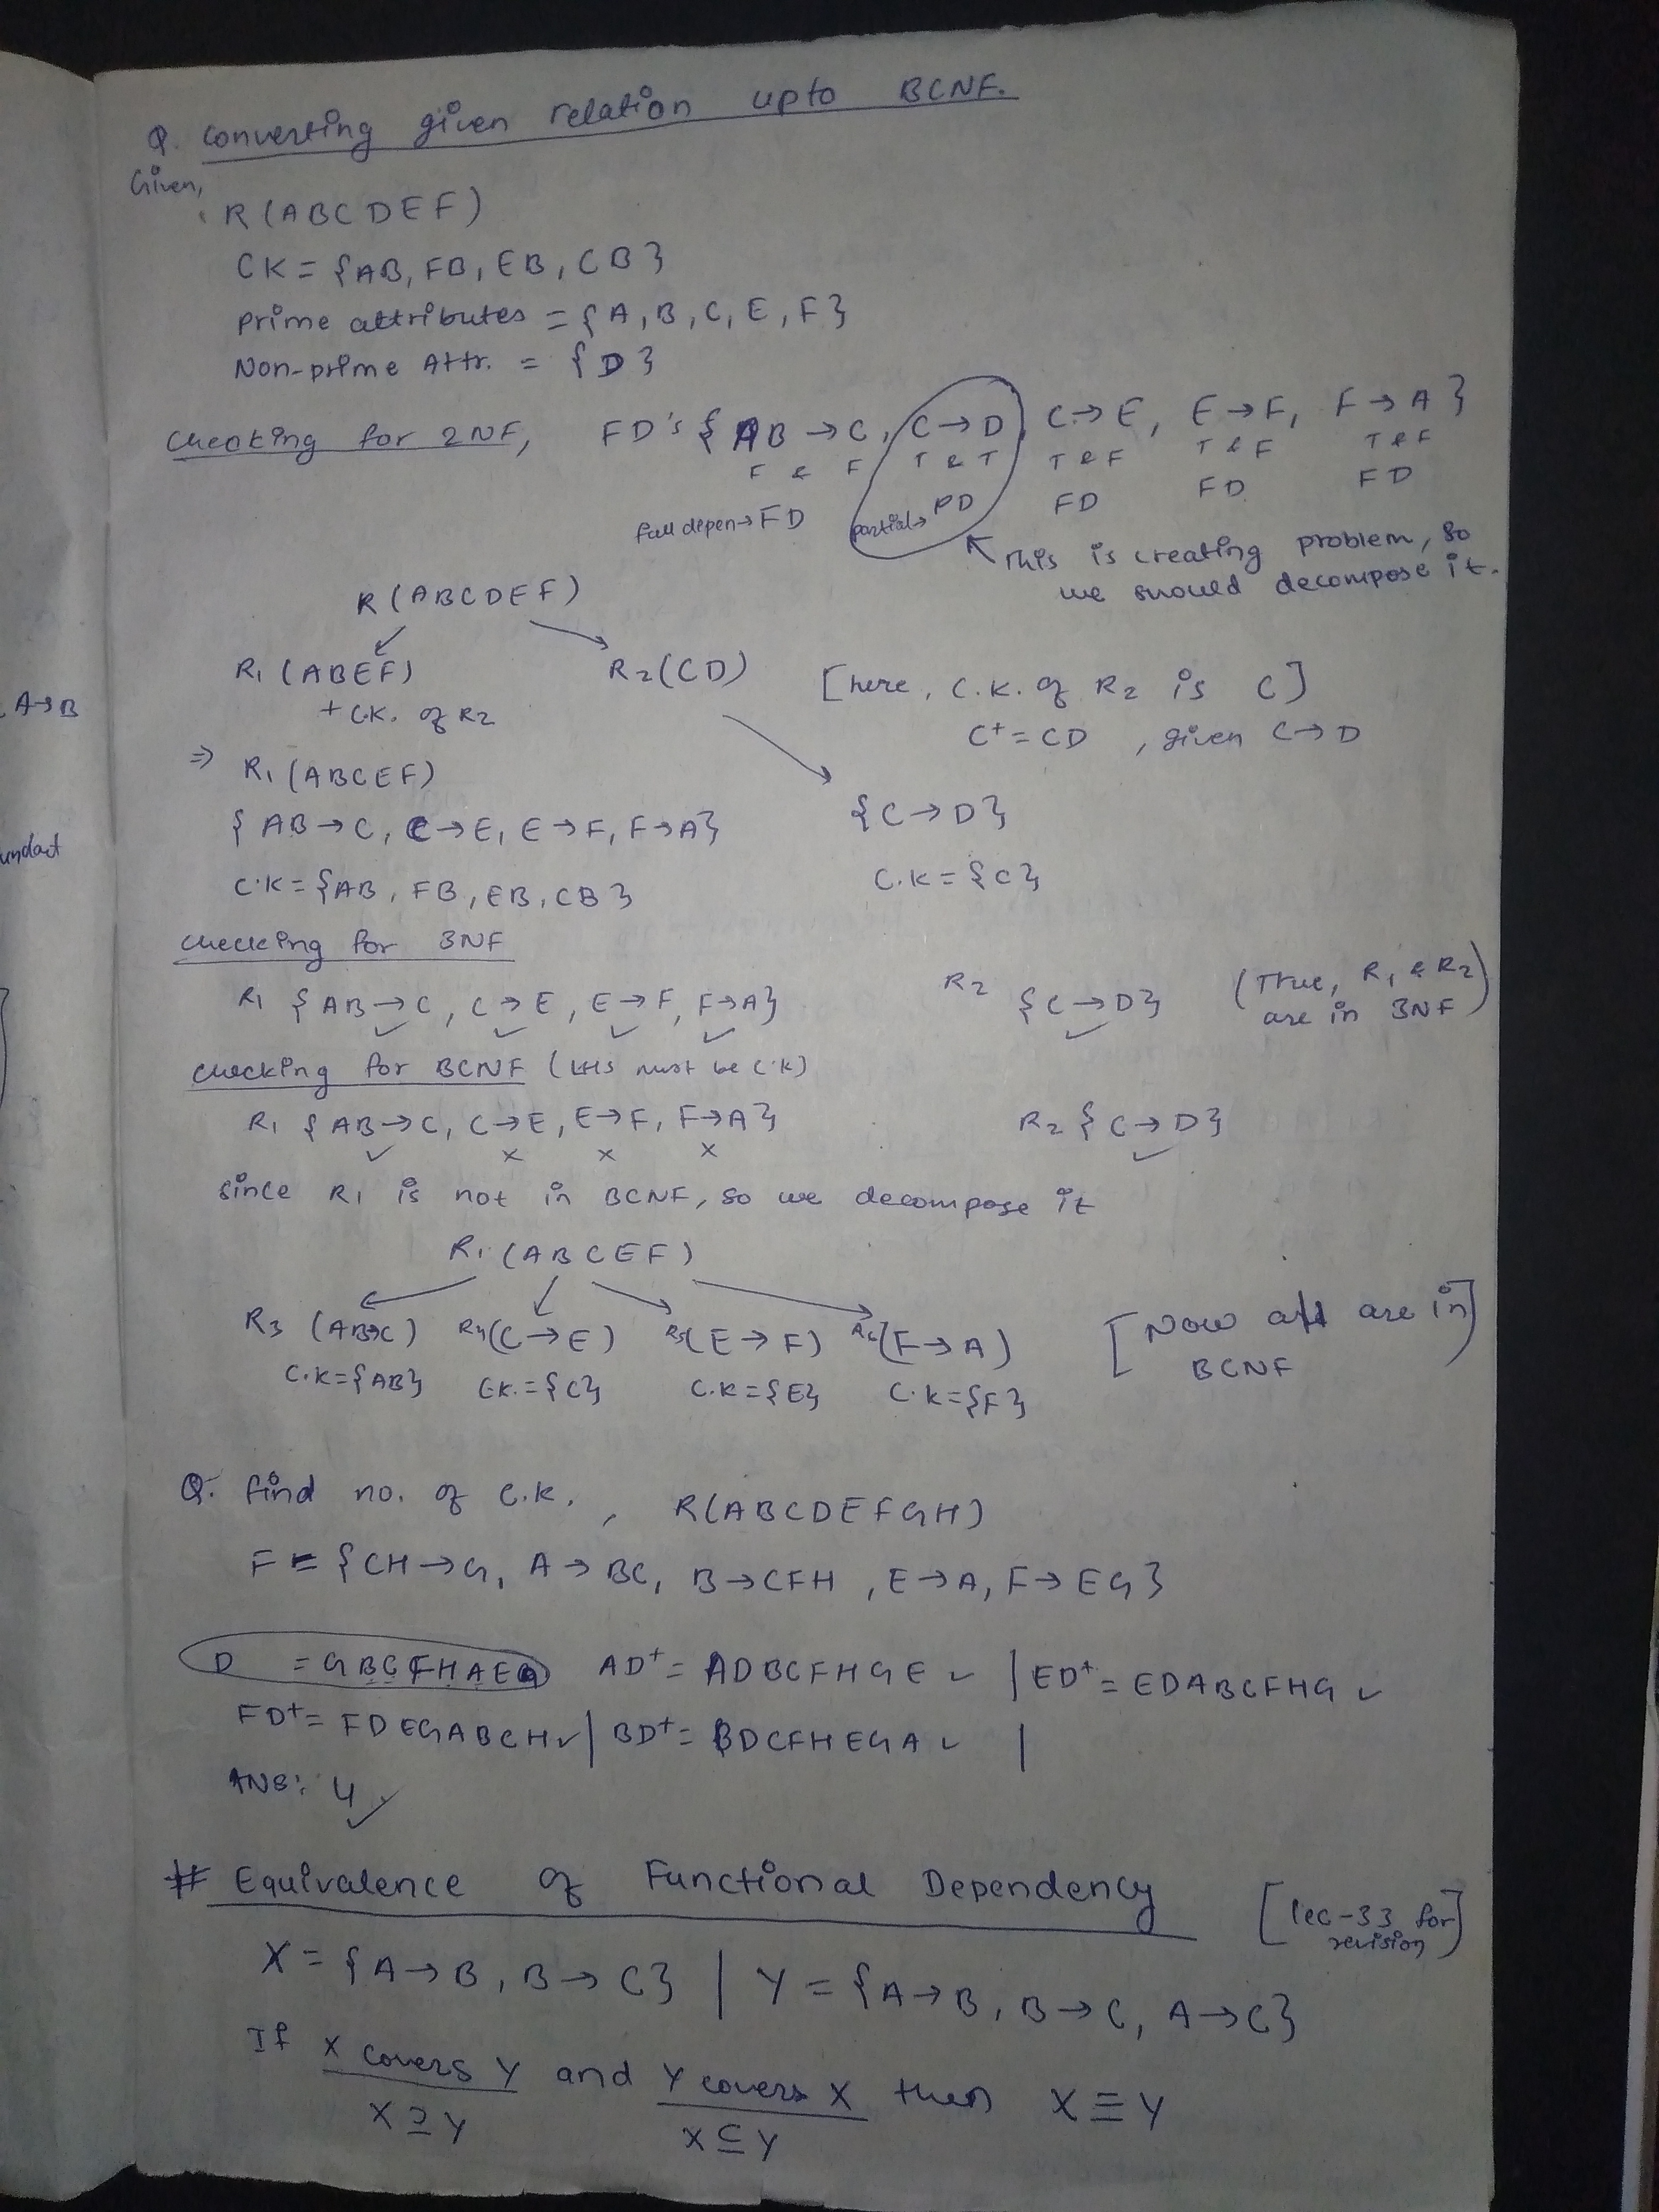 Q. Converting given relation upto BCNF.
Given,
R(ABCDEF)
CK = {AB, FB, EB, CB}
Prime attributes = {A, B, C, E, F}
Non-prime Attr. = {D}
Checking for 2NF, FD's {AB → C, C → D, C → E, E → F, F → A}
F & F T & T T & F T & F T & F
full depen → FD partial → PD FD FD FD
This is creating problem, so
we should decompose it.
R(ABCDEF)
R1 (ABEF) R2(CD) [here, C.K. of R2 is C]
+ C.K. of R2 C+ = CD , given C → D
A → B
⇒ R1 (ABCEF)
{AB → C, C → E, E → F, F → A} {C → D}
undact
C.K = {AB, FB, EB, CB} C.K = {C}
Checking for 3NF
R1 {AB → C, C → E, E → F, F → A} R2 {C → D} (True, R1 & R2
are in 3NF)
✓ ✓ ✓ ✓ ✓
Checking for BCNF (LHS must be C.K)
R1 {AB → C, C → E, E → F, F → A} R2 {C → D}
✓ x x x ✓
Since R1 is not in BCNF, so we decompose it
R1 (ABCEF)
R3 (AB→C) R4(C → E) R5(E → F) R6(F → A) [Now all are in
BCNF]
C.K={AB} C.K.={C} C.K={E} C.K={F}
Q. find no. of C.K. , R(ABCDEFGH)
F = {CH → G, A → BC, B → CFH , E → A, F → EG}
D = GBCFHAEG AD+ = ADBCFHGE ✓ | ED+ = EDABCFHG ✓
FD+ = FDEGABCH ✓ | BD+ = BDCFHEGA ✓ |
ANS: 4 ✓
# Equivalence of Functional Dependency [lec-33 for
revision]
X = {A → B, B → C} | Y = {A → B, B → C, A → C}
If X covers Y and Y covers X then X ≡ Y
X ⊇ Y X ⊆ Y